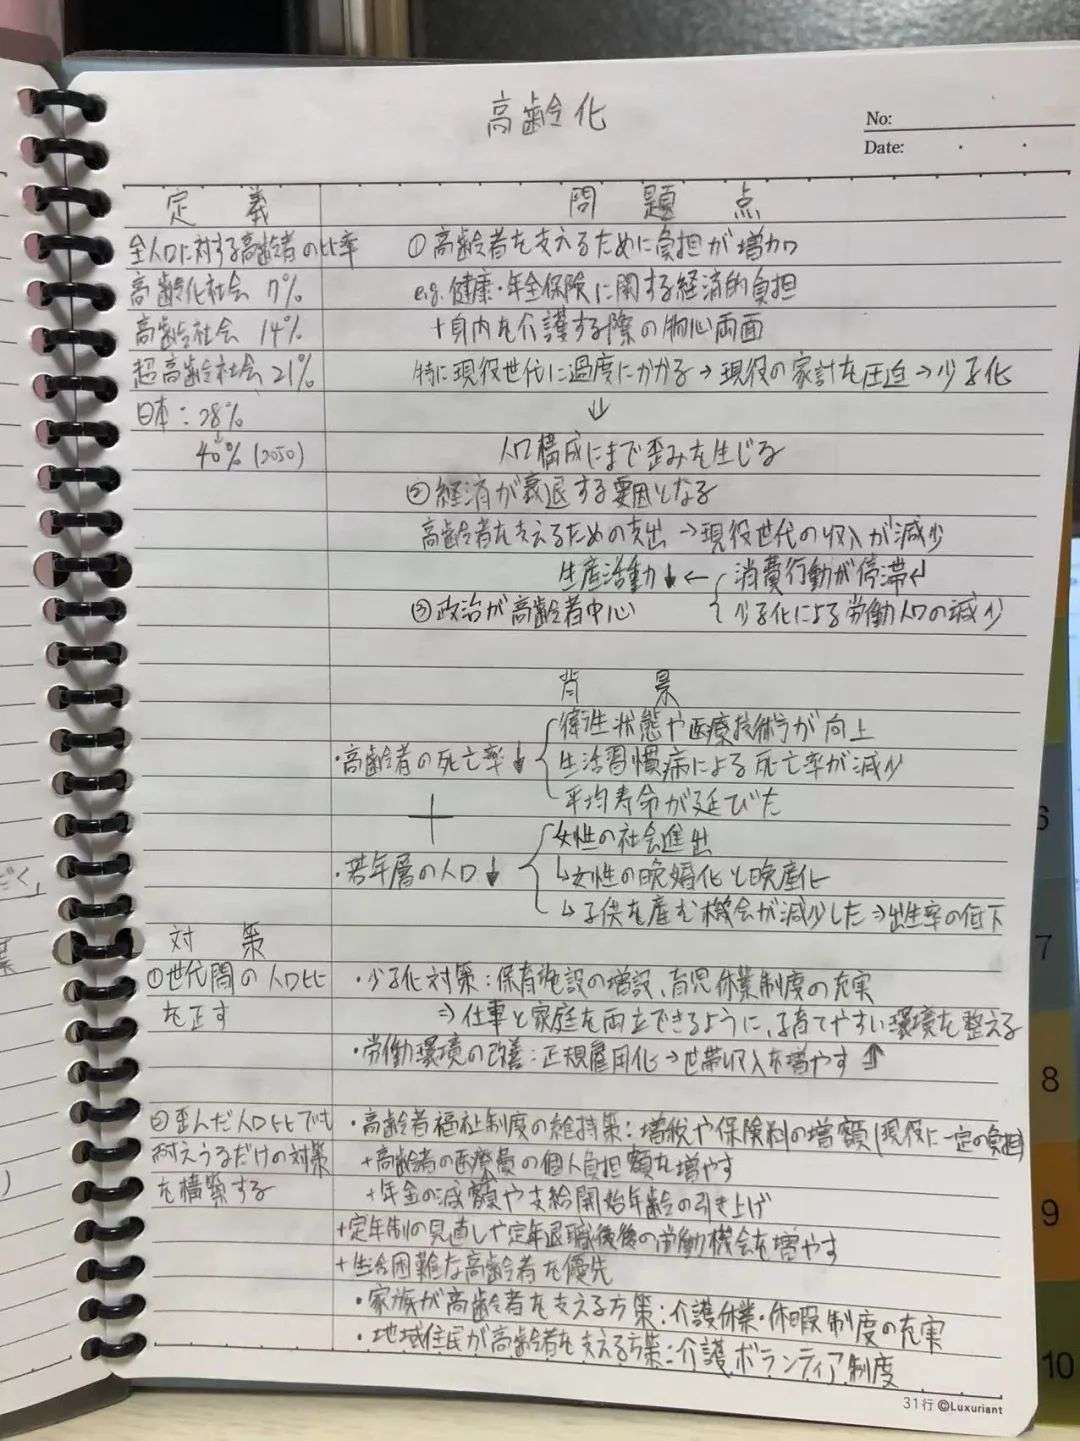 高齢化
No:
Date:
定義
問題点
全人口に対する高齢者の比率
①高齢者を支えるために負担が増加
高齢化社会 7%
e.g. 健康・年金保険に関する経済的負担
高齢社会 14%
+身内を介護する際の物心両面
超高齢社会 21%
特に現役世代に過度にかかる→現役の家計を圧迫→少子化
日本：28%
↓
↓
40%(2050)
人口構成にまで歪みを生じる
②経済が衰退する要因となる
高齢者を支えるための支出→現役世代の収入が減少
生産活動↓←消費行動が停滞↲
③政治が高齢者中心
少子化による労働人口の減少
背景
衛生状態や医療技術が向上
・高齢者の死亡率↓
生活習慣病による死亡率が減少
平均寿命が延びた
+
女性の社会進出
・若年層の人口↓
↳女性の晩婚化と晩産化
↳子供を産む機会が減少した⇒出生率の低下
対策
①世代間の人口比
・少子化対策：保育施設の増設、育児休業制度の充実
を正す
⇒仕事と家庭を両立できるように、子育てやすい環境を整える
・労働環境の改善：正規雇用化→世帯収入を増やす⇑
②歪んだ人口比でも
・高齢者福祉制度の維持策：増税や保険料の増額(現役に一定の負担)
耐えうるだけの対策
+高齢者の医療費の個人負担額を増やす
を構築する
+年金の減額や支給開始年齢の引き上げ
+定年制の見直しや定年退職後後の労働機会を増やす
+生活困難な高齢者を優先
・家族が高齢者を支える方策：介護休業・休暇制度の充実
・地域住民が高齢者を支える方策：介護ボランティア制度
31行 ©Luxuriant
6
7
8
9
10